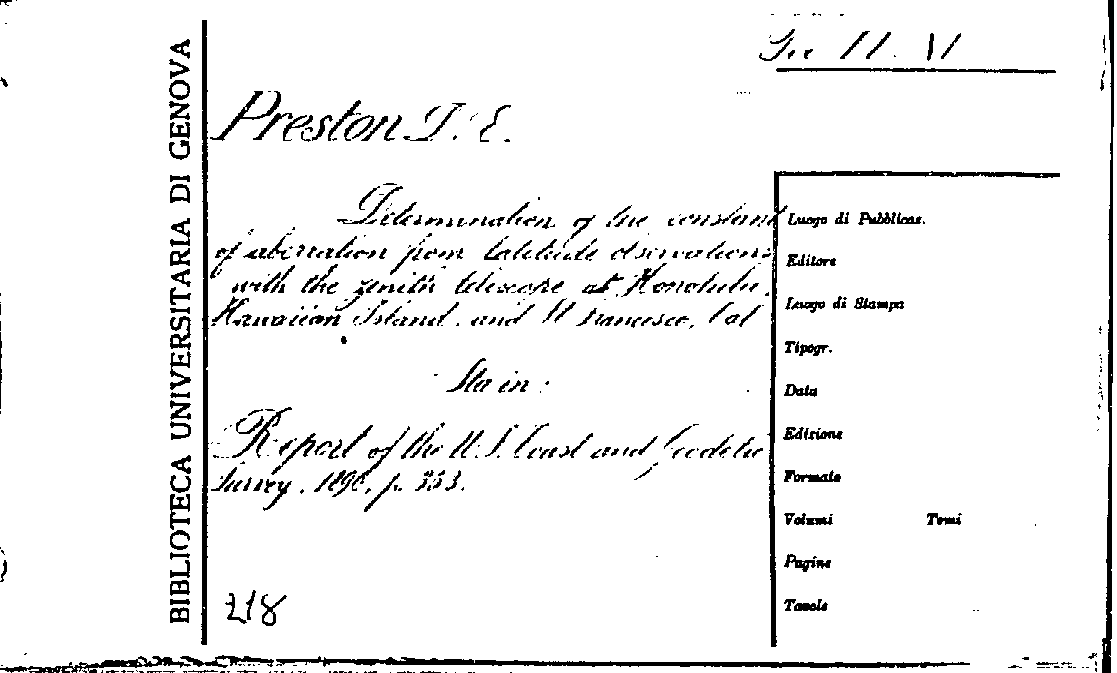 BIBLIOTECA UNIVERSITARIA DI GENOVA
Preston T. E.
Determination of the constant
of aberration from latitude observations
with the zenith telescope at Honolulu,
Hawaiian Island, and S Francisco, Cal
Sta in:
Report of the U.S. Coast and Geodetic
Survey, 1896, p. 353.
218
Luogo di Pubblicaz.
Editore
Luogo di Stampa
Tipogr.
Data
Edizione
Formato
Volumi Tomi
Pagine
Tavole